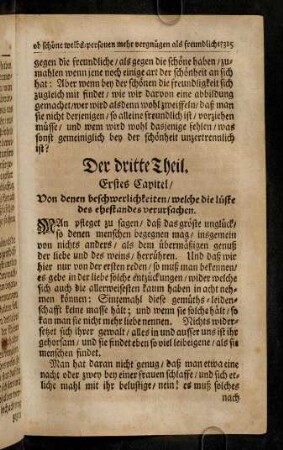 ob schöne weibs-personen mehr vergnügen als freundliche? 325
gegen die freundliche/ als gegen die schöne haben/ zu-
mahlen wenn jene noch einige art der schönheit an sich
hat: Aber wenn bey der schönen die freundligkeit sich
zugleich mit findet/ wie wir darvon eine abbildung
gemachet/ wer wird alsdenn wohl zweiffeln/ daß man
sie nicht derjenigen/ so alleine freundlich ist/ vorziehen
müsse/ und wem wird wohl dasjenige fehlen/ was
sonst gemeiniglich bey der schönheit unzertrennlich
ist?
Der dritte Theil.
Erstes Capitel/
Von denen beschwerlichkeiten/ welche die lüste
des ehestandes verursachen.
MAn pfleget zu sagen/ daß das gröste unglück/
so denen menschen begegnen mag/ insgemein
von nichts anders/ als dem übermäßigen genuß
der liebe und des weins/ herrühren. Und daß wir
hier nur von der ersten reden/ so muß man bekennen/
es gebe in der liebe solche entzückungen/ wider welche
sich auch die allerweisesten kaum haben in acht neh-
men können: Sintemahl diese gemüths-leiden-
schafft keine masse hält; und wenn sie solche hält/ so
kan man sie nicht mehr liebe nennen. Nichts wider-
setzet sich ihrer gewalt/ alles in und ausser uns ist ihr
gehorsam/ und sie findet eben so viel leibeigene/ als sie
menschen findet.
Man hat daran nicht genug/ daß man etwa eine
nacht oder zwey bey einer frauen schlaffe/ und sich et-
liche mahl mit ihr belustige/ nein! es muß solches
nach